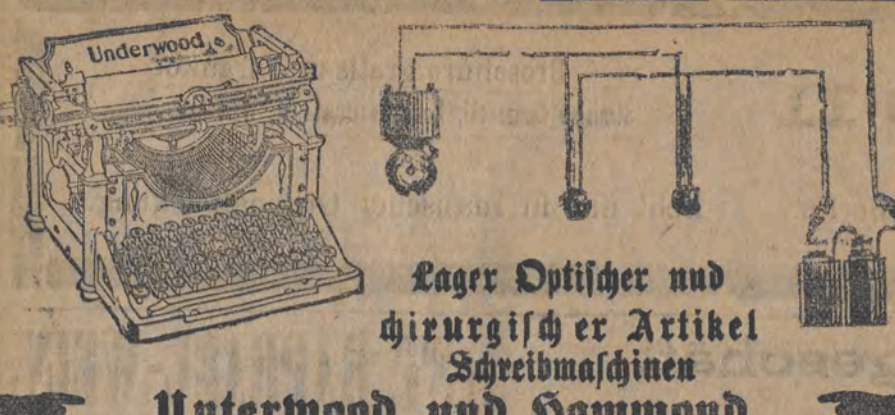 Underwood
Lager Optiſcher nnd
chirurgiſch er Artikel
Schreibmaſchinen
Unterwood und Hammond